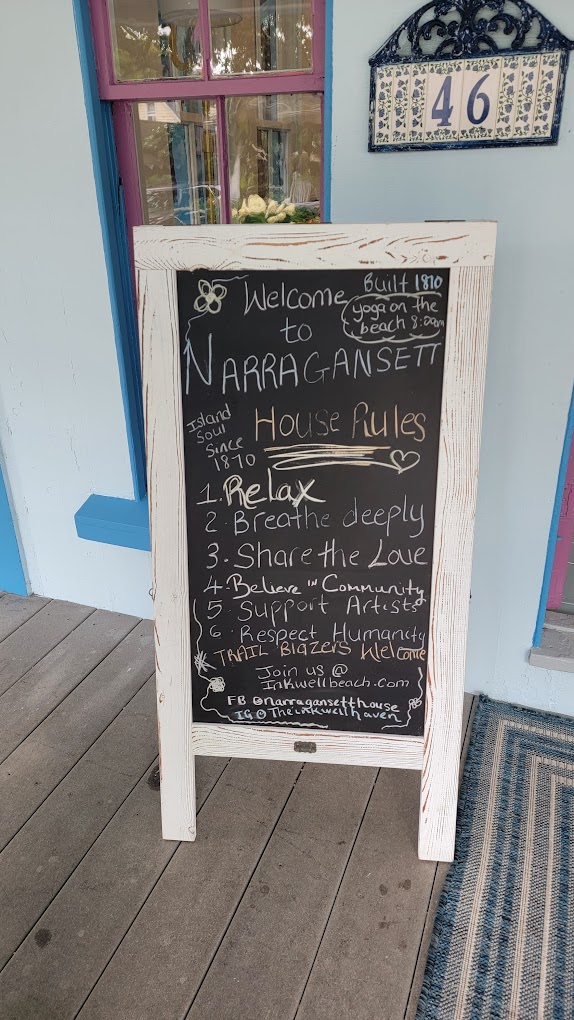 46
Welcome
to
NARRAGANSETT
Built 1870
yoga on the
beach 8:00am
Island
Soul
Since
1870
House Rules
1. Relax
2. Breathe deeply
3. Share the Love
4. Believe in Community
5 Support Artists
6 Respect Humanity
TRAIL BlAZERS Welcome
Join us @
Inkwellbeach.com
FB @narragansetthouse
IG @Theinkwellhaven